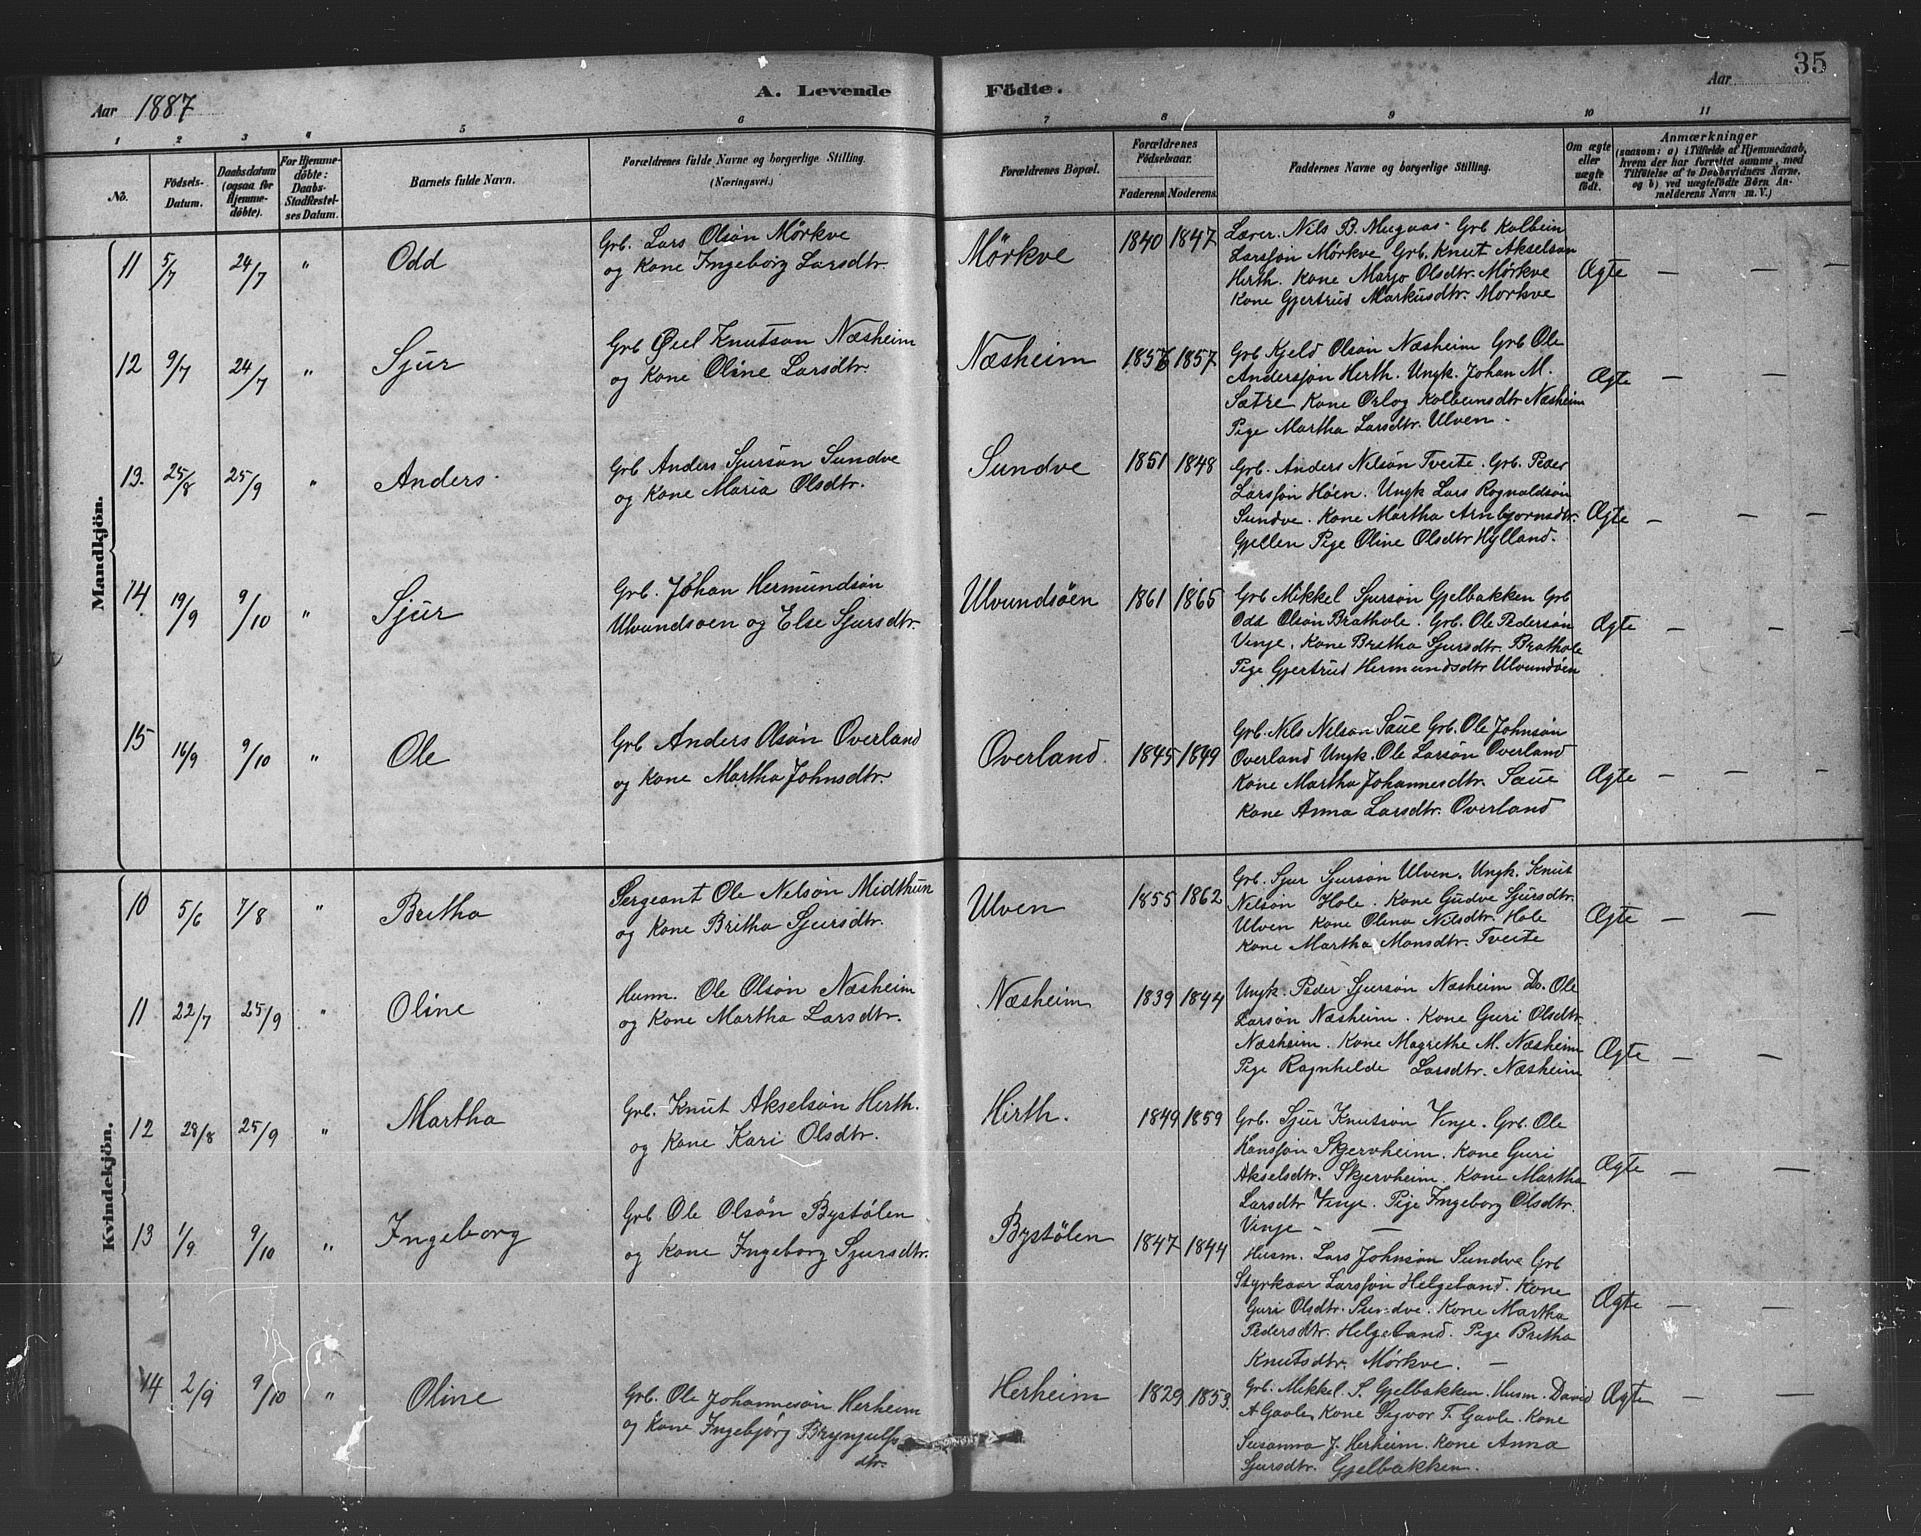 Aar 1887
A. Levende
Födte.
Aar
35
1
2
3
4
5
6
7
8
9
10
11
No.
Födsels-
Datum.
Daabsdatum
(ogsaa for
Hjemme-
döbte).
For Hjemme-
döbte:
Daabs-
Stadfæstel-
ses Datum.
Barnets fulde Navn.
Forældrenes fulde Navne og borgerlige Stilling.
(Næringsvei.)
Forældrenes Bopæl.
Forældrenes
Födselsaar.
Faderens
Moderens
Faddernes Navne og borgerlige Stilling.
Om ægte
eller
uægte
födt.
Anmærkninger
(saasom: a) i Tilfælde af Hjemmedaab,
hvem der har forrettet samme, med
Tilföielse af to Daabsvidners Navne,
og b) ved uægtefödte Börn An-
melderens Navn m. V.)
Mandkjön.
11 5/7 24/7 " Odd
Grb. Lars Olsøn Mørkve
og Kone Ingeborg Larsdtr.
Mörkve 1840 1847
Lærer Nils B. Mugaas Grb Kolbein
Larssøn Mørkve Grb. Knut Akselsøn
Herth. Kone Marjo Olsdtr. Mørkve
Kone Gjertrud Markusdtr. Mørkve
Ægte — — —
12 9/7 24/7 " Sjur
Grb Knutsøn Næsheim
og Kone Oline Larsdtr.
Næsheim 1857
Grb Kjeld Olsøn Næsheim Grb Ole
Anderssøn Herth. Ungk. Johan M.
Sætre Kone Orlog Kolbeinsdtr Næsheim
Pige Martha Larsdtr. Ulven.
Ægte — —
13. 25/8 25/9 " Anders
Grb Anders Sjursøn Sundve
og Kone Maria Olsdtr.
Sundve 1851 1848
Grb. Anders Nilsøn Tveite. Grb. Peder
Larssøn Høen. Ungk Lars Rognaldsøn
Sundve. Kone Martha Arnbjørnsdtr.
Gjellen Pige Oline Olsdtr Hylland.
Ægte — — —
14 19/9 9/10 " Sjur
Grb. Johan Hermundsøn
Ulvundsøen og Else Sjursdtr.
Ulvundsöen 1861 1865
Grb Mikkel Sjursøn Gjelbakken Grb
Odd Olsøn Brathole. Grb. Ole Pedersøn
Vinje. Kone Bretha Sjursdtr Brathole
Pige Gjertrud Hermundsdtr Ulvundøen
Ægte — — —
15 16/9 9/10 " Ole
Grb Anders Olsøn Overland
og Kone Martha Johnsdtr.
Overland. 1845 1849
Grb. Nils Nilsøn Saue Grb. Ole Johnsøn
Overland Ungk. Ole Larsøn Overland
Kone Martha Johannesdtr. Saue
Kone Anna Larsdtr. Overland
Ægte — — —
Kvindekjön.
10 5/6 7/8 " Britha
Sergeant Ole Nelsøn Midthun
og Kone Britha Sjursdtr.
Ulven 1855 1862
Grb. Sjur Sjursøn Ulven. Ungk. Knut
Nelsøn Hole. Kone Gudve Sjursdtr.
Ulven Kone Olina Nilsdtr. Hole
Kone Martha Monsdtr. Tveite
Ægte — —
11 22/7 25/9 " Oline
Husm. Ole Olsøn Næsheim
og Kone Martha Larsdtr.
Næsheim 1839 1844
Ungk. Peder Sjursøn Næsheim Do. Ole
Larsøn Næsheim. Kone Guri Olsdtr.
Næsheim. Kone Magrethe M. Næsheim
Pige Ragnhilde Larsdtr. Næsheim
Ægte — —
12 28/8 25/9 " Martha
Grb. Knut Akselsøn Herth.
og Kone Kari Olsdtr.
Hirth. 1849 1859
Grb. Sjur Knutsøn Vinje. Grb. Ole
Hanssøn Skjervheim. Kone Guri
Akselsdtr. Skjervheim. Kone Martha
Larsdtr Vinje. Pige Ingeborg Olsdtr.
Vinje — —
Ægte — —
13 1/9 9/10 " Ingeborg
Grb Ole Olsøn Bystølen
og Kone Ingeborg Sjursdtr.
Bystølen 1847 1844
Husm. Lars Johnsøn Sundve Grb
Styrkaar Larssøn Helgeland. Kone
Guri Olsdtr. Sundve. Kone Martha
Pedersdtr. Helgeland. Pige Britha
Knutsdtr. Mørkve. —
Ægte — —
14 2/9 9/10 " Oline
Grb. Ole Johannesøn Herheim
og Kone Ingebjørg Bryngulfs
dtr.
Herheim 1829 1853.
Grb. Mikkel S. Gjelbakken. Husm. David
A Gavle, Kone Sigvor T. Gavle. Kone
Susanna J. Herheim. Kone Anna
Sjursdtr. Gjelbakken.
Ægte — —